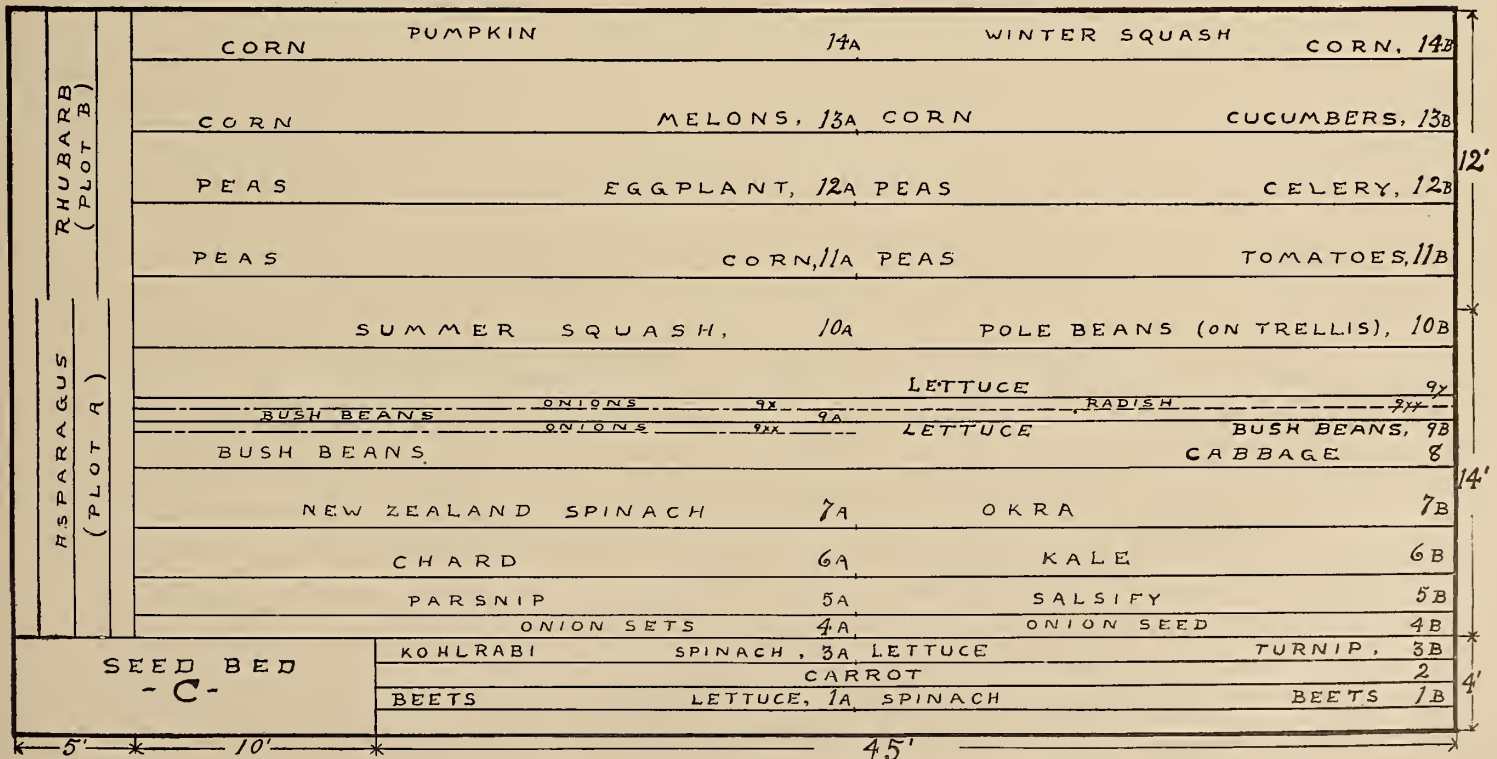 CORN PUMPKIN 14A WINTER SQUASH CORN, 14B
CORN MELONS, 13A CORN CUCUMBERS, 13B
PEAS EGGPLANT, 12A PEAS CELERY, 12B
PEAS CORN, 11A PEAS TOMATOES, 11B
SUMMER SQUASH, 10A POLE BEANS (ON TRELLIS), 10B
LETTUCE 9Y
ONIONS 9X RADISH 9YY
BUSH BEANS 9A
ONIONS 9XX LETTUCE BUSH BEANS, 9B
BUSH BEANS. CABBAGE 8
NEW ZEALAND SPINACH 7A OKRA 7B
CHARD 6A KALE 6B
PARSNIP 5A SALSIFY 5B
ONION SETS 4A ONION SEED 4B
KOHLRABI SPINACH, 3A LETTUCE TURNIP, 3B
CARROT 2
BEETS LETTUCE, 1A SPINACH BEETS 1B
RHUBARB
(PLOT B)
ASPARAGUS
(PLOT A)
SEED BED
- C -
12'
14'
4'
5' 10' 45'